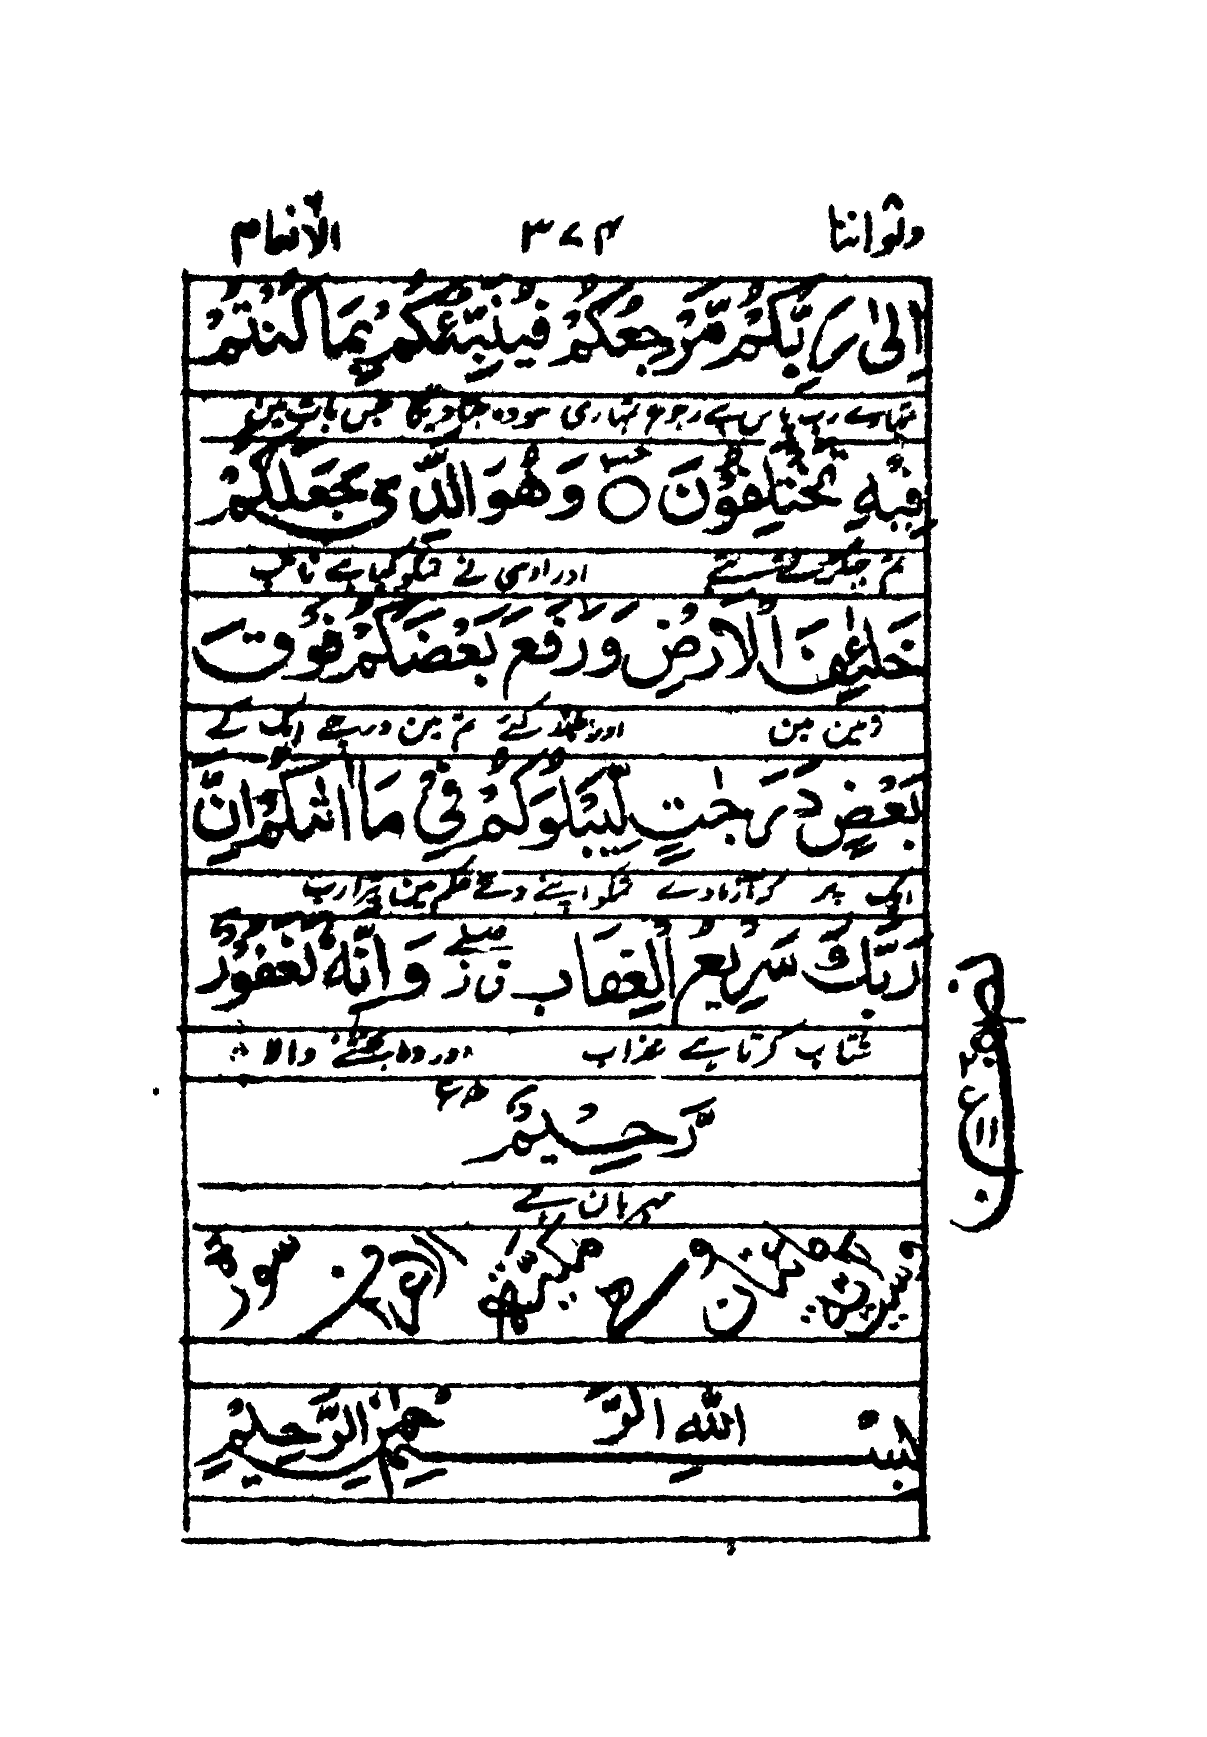 ولواننا ٣٧٤ الأنعام
اِلٰى رَبِّكُمْ مَّرْجِعُكُمْ فَيُنَبِّئُكُمْ بِمَا كُنْتُمْ
تمہارے رب پاس ہے رجوع تمہاری سو وہ جتا دیگا جس بات مین
فِيْهِ تَخْتَلِفُوْنَ ○ وَهُوَ الَّذِيْ جَعَلَكُمْ
تم جھگڑتے تھے اور اوسی نے تمکو کیا ہے نائب
خَلٰٓئِفَ الْاَرْضِ وَرَفَعَ بَعْضَكُمْ فَوْقَ
زمین مین اور بلند کئے تم مین درجے ایک کے
بَعْضٍ دَرَجٰتٍ لِّيَبْلُوَكُمْ فِيْ مَآ اٰتٰىكُمْ اِنَّ
ایک پر کہ آزماوے تمکو اپنے دئے حکم مین تیرا رب
رَبَّكَ سَرِيْعُ الْعِقَابِ وَاِنَّهٗ لَغَفُوْرٌ
شتاب کرتا ہے عذاب اور وہ بخشنے والا
رَّحِيْمٌ
مہربان ہے
بِسْمِ اللّٰهِ الرَّحْمٰنِ الرَّحِيْمِ